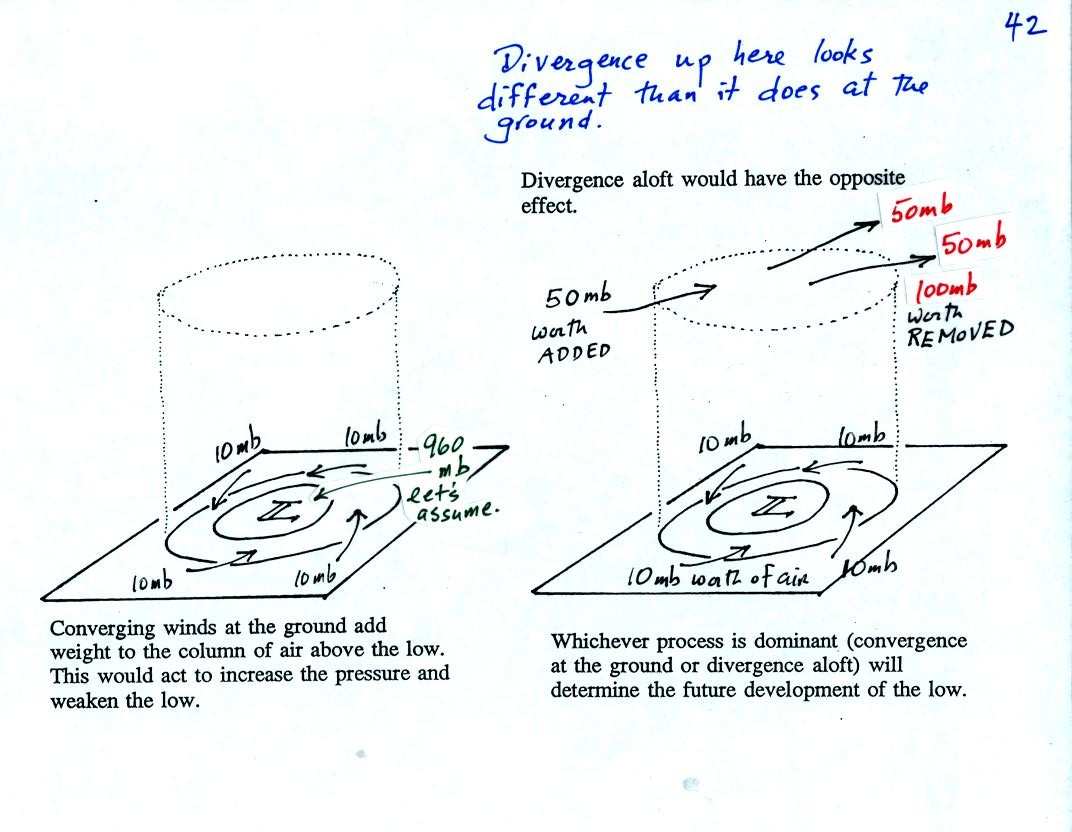 42
Divergence up here looks
different than it does at the
ground.
Divergence aloft would have the opposite
effect.
50mb
50mb
50mb
worth
ADDED
100mb
worth
REMOVED
10mb
10mb
960
mb
let's
assume.
L
10mb
10mb
10mb
10mb
L
10mb worth of air
10mb
Converging winds at the ground add
weight to the column of air above the low.
This would act to increase the pressure and
weaken the low.
Whichever process is dominant (convergence
at the ground or divergence aloft) will
determine the future development of the low.